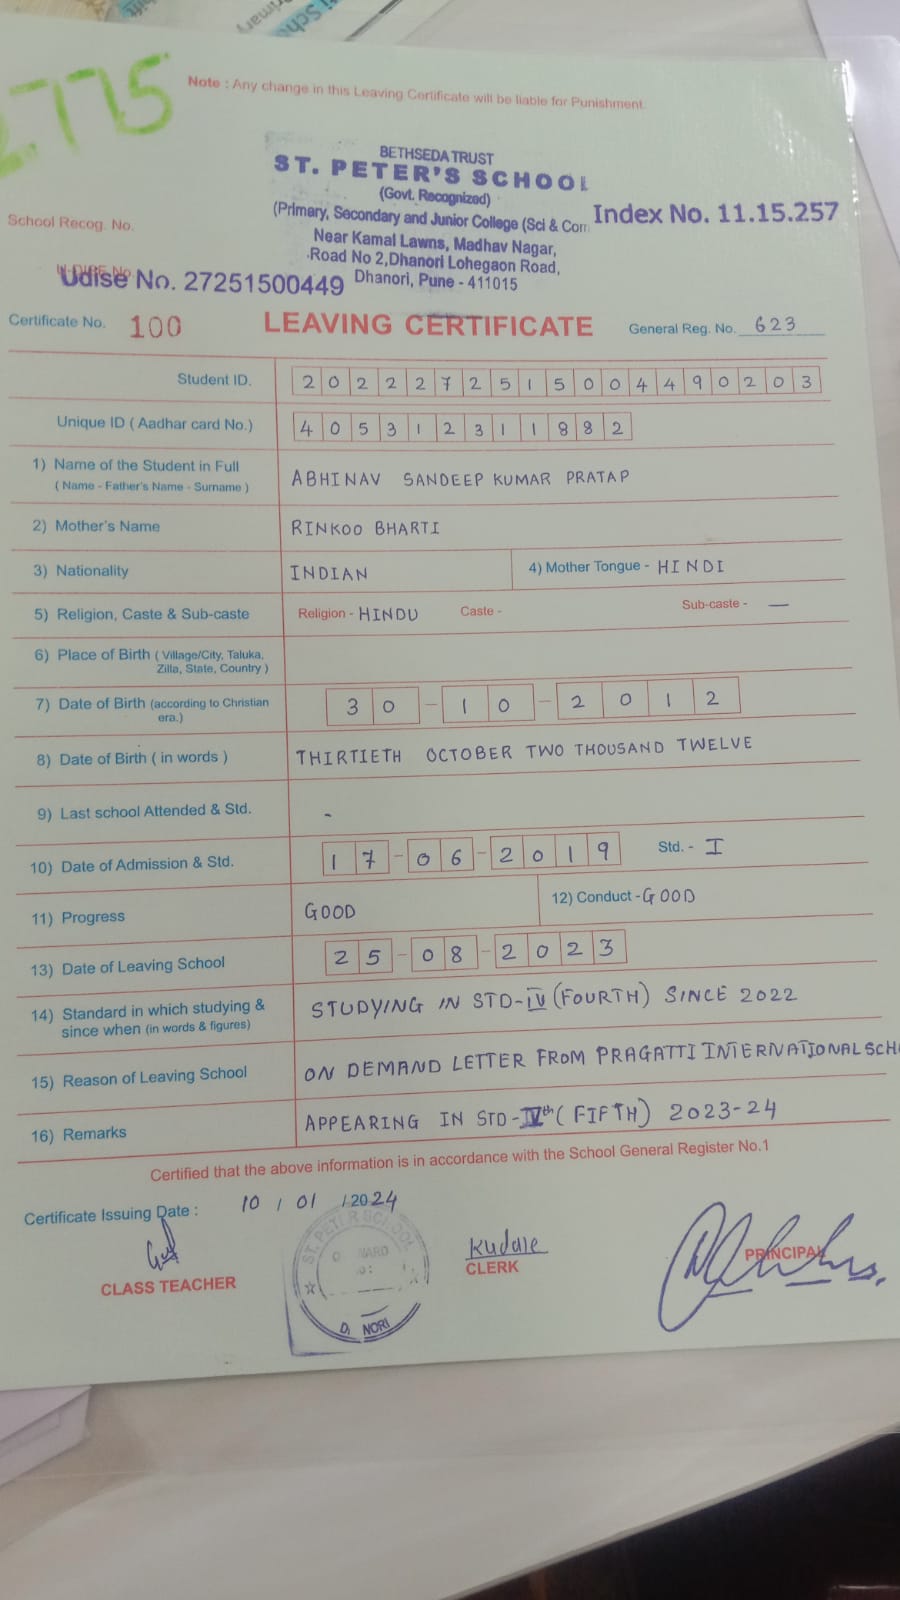 2775
Note : Any change in this Leaving Certificate will be liable for Punishment.
BETHSEDA TRUST
ST. PETER'S SCHOOL
(Govt. Recognized)
(Primary, Secondary and Junior College (Sci & Com
Index No. 11.15.257
School Recog. No.
Near Kamal Lawns, Madhav Nagar,
Road No 2,Dhanori Lohegaon Road,
Dhanori, Pune - 411015
Udise No. 27251500449
Certificate No. 100
LEAVING CERTIFICATE
General Reg. No. 623
Student ID. 2022272515004490203
Unique ID ( Aadhar card No.) 405312311882
1) Name of the Student in Full ABHINAV SANDEEP KUMAR PRATAP
( Name - Father's Name - Surname )
2) Mother's Name RINKOO BHARTI
3) Nationality INDIAN 4) Mother Tongue - HINDI
5) Religion, Caste & Sub-caste Religion - HINDU Caste - Sub-caste - —
6) Place of Birth ( Village/City, Taluka,
Zilla, State, Country )
7) Date of Birth (according to Christian 30 - 10 - 2012
era.)
8) Date of Birth ( in words ) THIRTIETH OCTOBER TWO THOUSAND TWELVE
9) Last school Attended & Std. -
10) Date of Admission & Std. 17 - 06 - 2019 Std. - I
11) Progress GOOD 12) Conduct - GOOD
13) Date of Leaving School 25 - 08 - 2023
14) Standard in which studying & STUDYING IN STD-IV (FOURTH) SINCE 2022
since when (in words & figures)
15) Reason of Leaving School ON DEMAND LETTER FROM PRAGATTI INTERNATIONAL SCH
16) Remarks APPEARING IN STD- (FIFTH) 2023-24
Certified that the above information is in accordance with the School General Register No.1
Certificate Issuing Date : 10 / 01 / 2024
ST. PETER SCHOOL
CLASS TEACHER
CLERK
PRINCIPAL